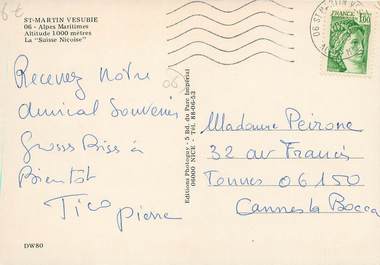 ST-MARTIN VESUBIE
06 - Alpes Maritimes
Altitude 1000 mètres
La "Suisse Niçoise"
Recevez Notre
amical Souvenir
Grosses Bises à
Bientôt
Tico
pierre
DW80
Editions Photoguy - 5 Bd. du Parc Impérial
06000 NICE - Tél. 88-06-53
06 ST-MARTIN
FRANCE
1,00
Madame Peirone
32 av Francis
Tonner 06150
Cannes la Bocca